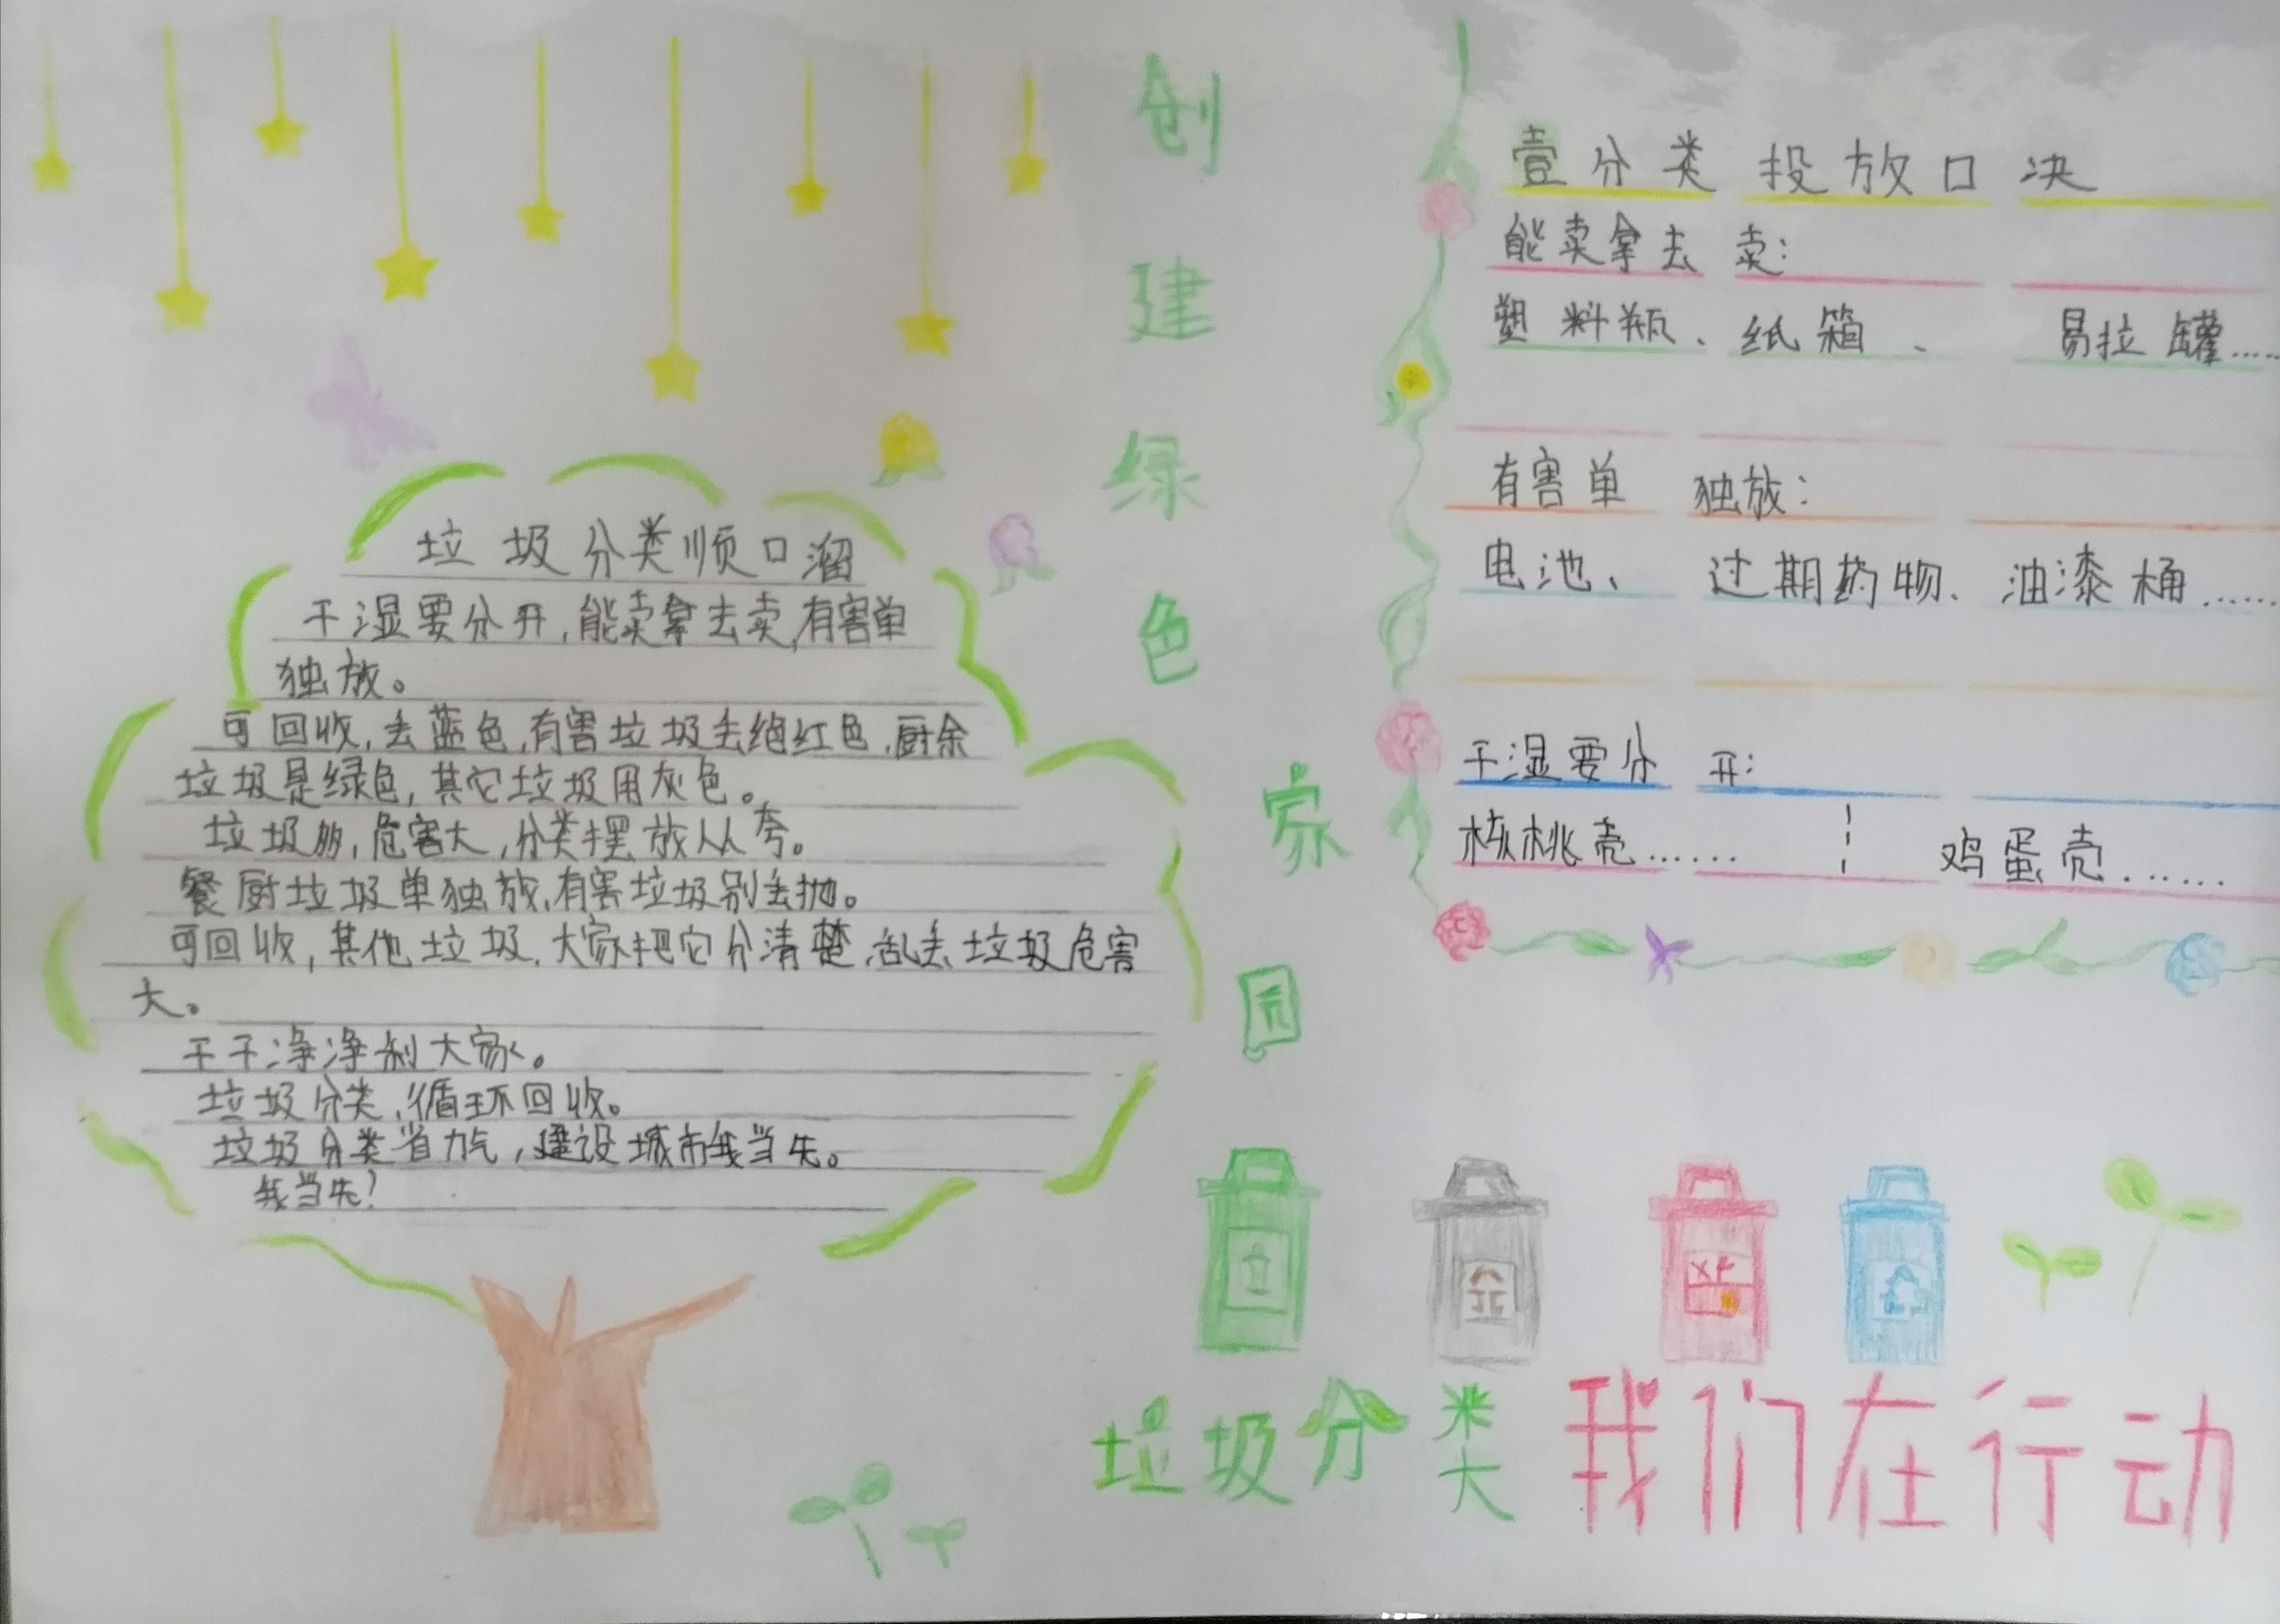 创建绿色家园
垃圾分类顺口溜
干湿要分开,能卖拿去卖,有害单
独放。
可回收,去蓝色,有害垃圾丢绝红色,厨余
垃圾是绿色,其它垃圾用灰色。
垃圾多,危害大,分类摆放人人夸。
餐厨垃圾单独放,有害垃圾别丢抛。
可回收,其他垃圾,大家把它分清楚,乱丢垃圾危害
大。
干干净净利大家。
垃圾分类,循环回收。
垃圾分类省力气,建设城市我当先。
我当先!
壹分类投放口决
能卖拿去卖:
塑料瓶、纸箱、易拉罐……
有害单独放:
电池、过期药物、油漆桶……
干湿要分开:
核桃壳…… 鸡蛋壳……
垃圾分类我们在行动